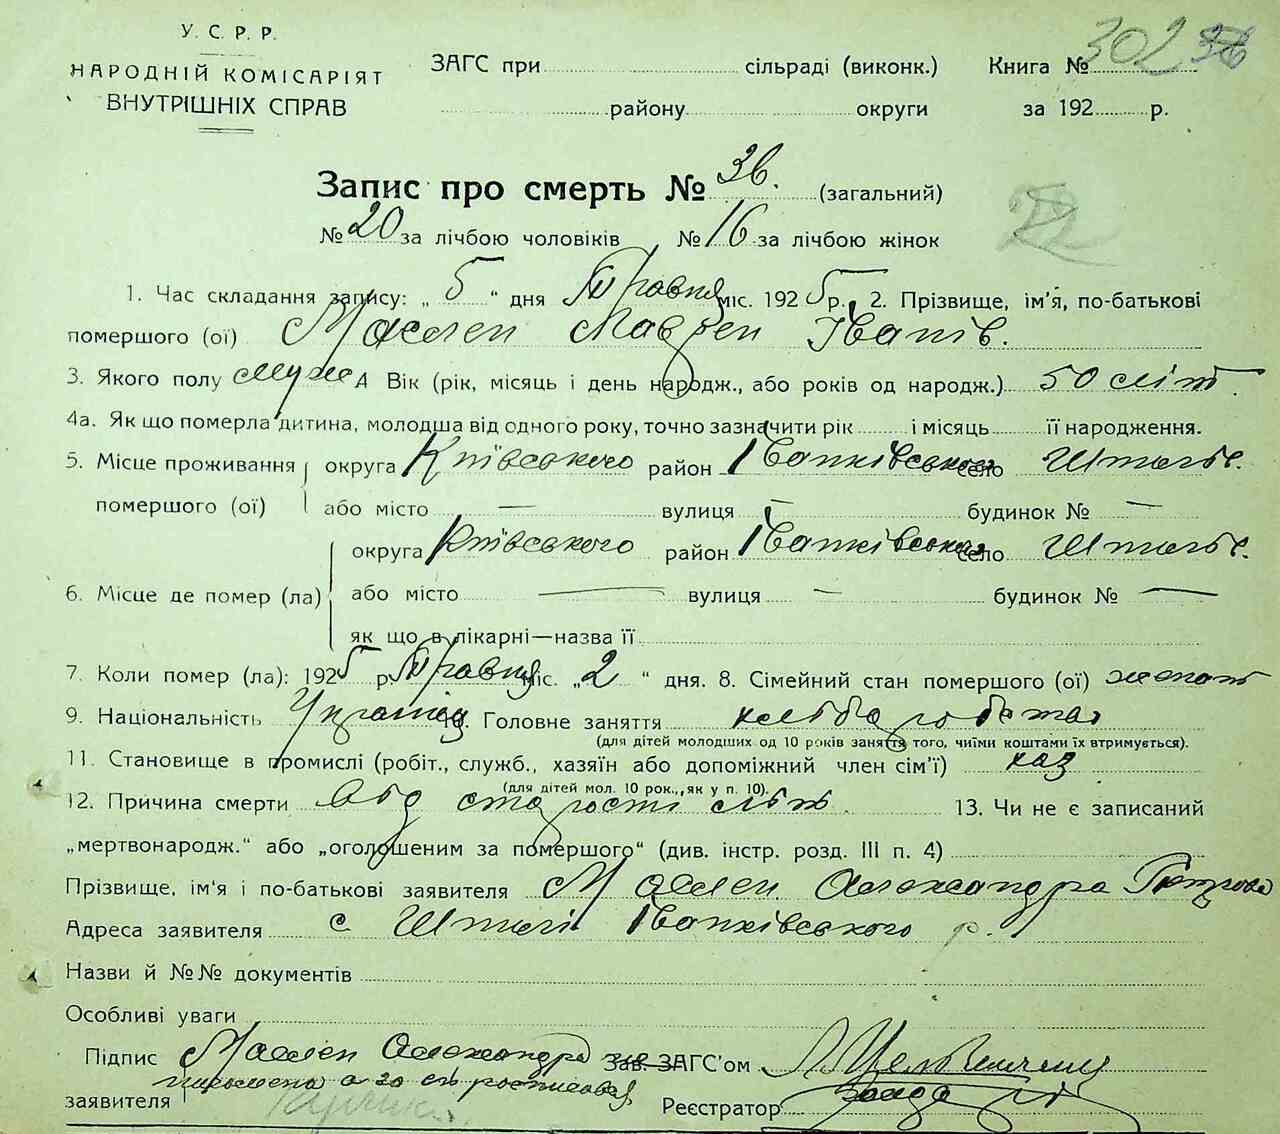 У. С. Р. Р.
НАРОДНІЙ КОМІСАРІЯТ
ВНУТРІШНІХ СПРАВ
ЗАГС при сільраді (виконк.)
району округи
Книга № 302 36
за 192 р.
Запис про смерть № 36. (загальний)
№ 20 за лічбою чоловіків № 16 за лічбою жінок
1. Час складання запису: „ 5 “ дня Травня міс. 1925 р. 2. Прізвище, ім'я, по-батькові
помершого (ої) Іванів.
3. Якого полу муж А Вік (рік, місяць і день народж., або років од народж.) 50 літ
4а. Як що померла дитина, молодша від одного року, точно зазначити рік і місяць її народження.
5. Місце проживання округа Київського район Іванківського село
помершого (ої) або місто — вулиця — будинок № —
округа Київського район Іванківського село
6. Місце де помер (ла) або місто — вулиця — будинок № —
як що в лікарні—назва її
7. Коли помер (ла): 1925 р. Травня міс. „ 2 “ дня. 8. Сімейний стан помершого (ої) женат
9. Національність 10. Головне заняття
(для дітей молодших од 10 років заняття того, чиїми коштами їх втримується).
11. Становище в промислі (робіт., служб., хазяїн або допоміжний член сім'ї) хаз
(для дітей мол. 10 рок., як у п. 10).
12. Причина смерти від старости літ 13. Чи не є записаний
„мертвонародж.“ або „оголошеним за помершого“ (див. інстр. розд. III п. 4)
Прізвище, ім'я і по-батькові заявителя Александра
Адреса заявителя с Іванківського р.
Назви й №№ документів
Особливі уваги
Підпис Александра Зав. ЗАГС'ом
заявителя Реєстратор